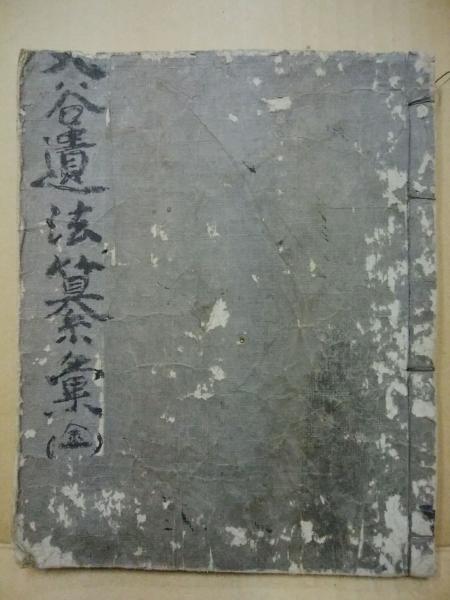 大谷遺法纂彙(全)